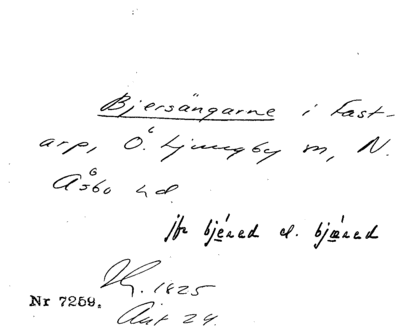 Bjersängarne i Fast-
arp, Ö. Ljungby m, N.
Åsbo hd.
jfr bjéred el. bjæred
1825
Nr 7259.
Akt 24.